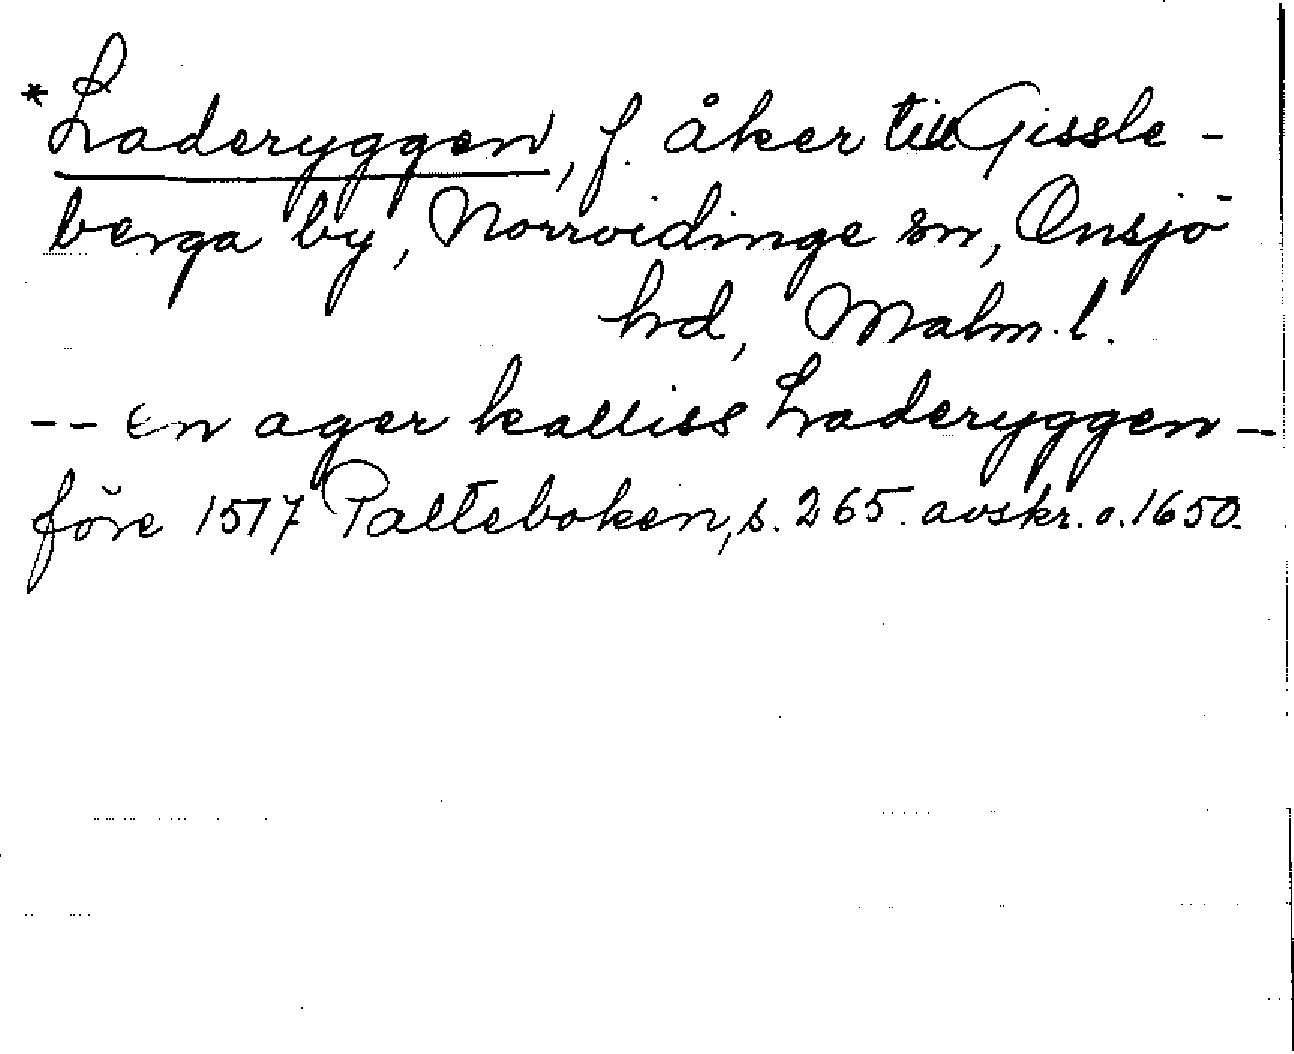 *Laderyggen, f. åker till Gissle-
berga by, Norrvidinge sn, Onsjö
hd, Malm.l.
-- en ager kalliss Laderyggen -
före 1517 Palteboken, s. 265. avskr. o. 1650.